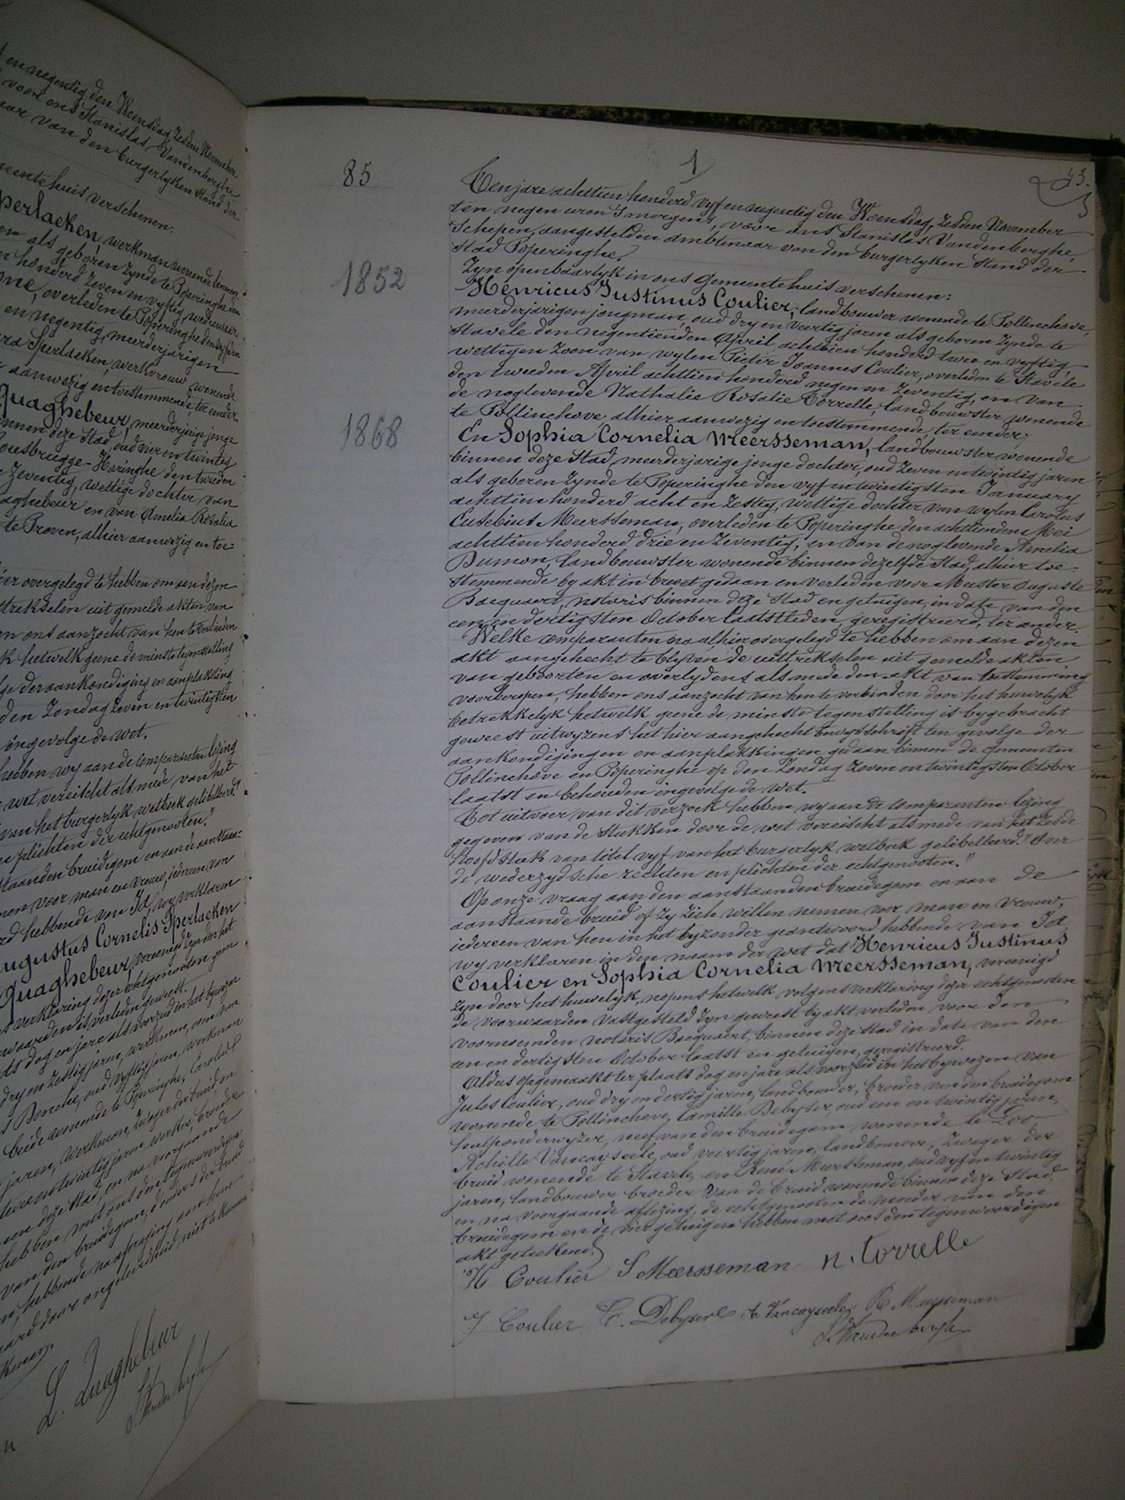 en negentig den Woensdag, zesden November
voor ons Stanislas Vandenberghe
van den burgerlyken Stand der
gemeentehuis verschenen:
Sperlaeken, werkman wonende binnen
als geboren zynde te Poperinghe den
honderd zeven en vyftig, weduwaar
overleden te Poperinghe
en negentig, meerderjarigen
Sperlaeken, werkvrouw wonende
aanwezig en toestemmende, ter eender
Quaghebeur, meerderjarige jonge
binnen deze Stad, oud vier en twintig
Rousbrugge-Haringhe den tweeden
Zeventig, wettige dochter van
Quaghebeur en van Amelia Rosalia
te Proven, alhier aanwezig en toe-
overgelegd te hebben om aan dezen
uittrekselen uit gemelde akten van
ons aanzocht van hen te verbinden
hetwelk geene de minste tegenstelling
der aankondiging en aanplakking
den Zondag zeven en twintigsten
ingevolge de wet.
hebben wy aan de comparanten lezing
wet vereischt als mede van het
van het burgerlyk wetboek gelibelleerd
plichten der echtgenooten."
aanstaanden bruidegom en aan de aanstaan-
nemen voor man en vrouw, iedereen van
hebbende van Ja, wy verklaren
Augustus Cornelis Sperlaeken
Quaghebeur, vereenigd zyn door het
verklaring dezer echtgenooten geen
L. Quaghebeur
S. Vandenberghe
85
1
43.
1852
1868
Ten jare achttien honderd vyf en negentig den Woensdag, zesden November
ten negen uren 's morgens, voor ons Stanislas Vandenberghe,
Schepen, aangestelden ambtenaar van den burgerlyken Stand der
Stad Poperinghe,
Zyn openbaarlyk in ons gemeentehuis verschenen:
Henricus Justinus Coulier, landbouwer wonende te Pollinchove,
meerderjarigen jongman, oud dry en veertig jaren als geboren zynde te
Stavele den negentienden April achttien honderd twee en vyftig,
wettigen Zoon van wylen Pieter Joannes Coulier, overleden te Stavele
den tweeden April achttien honderd negen en zeventig, en van
de noglevende Nathalie Rosalie Torrelle, landbouwster wonende
te Pollinchove, alhier aanwezig en toestemmende, ter eender;
En Sophia Cornelia Meersseman, landbouwster wonende
binnen deze Stad, meerderjarige jonge dochter, oud zeven en twintig jaren
als geboren zynde te Poperinghe den vyf en twintigsten January
achttien honderd acht en zestig, wettige dochter van wylen Carolus
Eusebius Meersseman, overleden te Poperinghe den achttienden Mei
achttien honderd drie en zeventig, en van de noglevende Amelia
Dumon, landbouwster wonende binnen dezelfde Stad, alhier toe-
stemmende by akt in brevet gedaan en verleden voor Meester Auguste
Bacquaert, notaris binnen deze Stad en getuigen, in date van den
een en dertigsten October laatstleden, geregistreerd, ter ander.
Welke comparanten na alhier overgelegd te hebben om aan dezen
akt aangehecht te blyven de uittrekselen uit gemelde akten
van geboorten en overlydens als mede den akt van toestemming
voorschreven, hebben ons aanzocht van hen te verbinden door het huwelyk
betrekkelyk hetwelk geene de minste tegenstelling is bygebracht
geweest uitwyzens het hier aangehecht bewysschrift ten gevolge der
aankondigingen en aanplakkingen gedaan binnen de Gemeenten
Pollinchove en Poperinghe op den Zondag zeven en twintigsten October
laatst en behouden ingevolge de wet.
Tot uitvoer van dit verzoek hebben wy aan de comparanten lezing
gegeven van de stukken door de wet vereischt als mede van het zesde
hoofdstuk van titel vyf van het burgerlyk wetboek gelibelleerd: "Over
de wederzydsche rechten en plichten der echtgenooten."
Op onze vraag aan den aanstaanden bruidegom en aan de
aanstaande bruid of zy zich willen nemen voor man en vrouw,
iedereen van hen in het byzonder geantwoord hebbende van Ja,
wy verklaren in den naam der wet dat Henricus Justinus
Coulier en Sophia Cornelia Meersseman, vereenigd
zyn door het huwelyk, nopens hetwelk volgens verklaring dezer echtgenooten
de voorwaarden vastgesteld zyn geweest by akt verleden voor den
voornoemden notaris Bacquaert, binnen deze stad in date van den
een en dertigsten October laatst en getuigen, geregistreerd.
Aldus opgemaakt ter plaats dag en jare als voorzeid in het bywezen van
Jules Coulier, oud dry en dertig jaren, landbouwer, broeder van den bruidegom
wonende te Pollinchove, Camille Debyser, oud een en twintig jaren,
hulponderwyzer, neef van den bruidegom, wonende te Loo
Achille Vancayseele, oud veertig jaren, landbouwer, zwager der
bruid wonende te Stavele, en René Meersseman, oud vyf en twintig
jaren, landbouwer broeder van de bruid wonende binnen deze Stad
en na voorgaande aflezing, de echtgenooten de moeder van den
bruidegom en de vier getuigen hebben met ons den tegenwoordigen
akt geteekend.
H Coulier S Meersseman N. Torrelle
J Coulier C. Debyser A. Vancayseele R. Meersseman
S. Vandenberghe